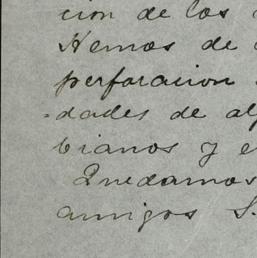 cion de los
Hemos de
perforacion
dades de al
bianos y e
Quedamos
amigos S.